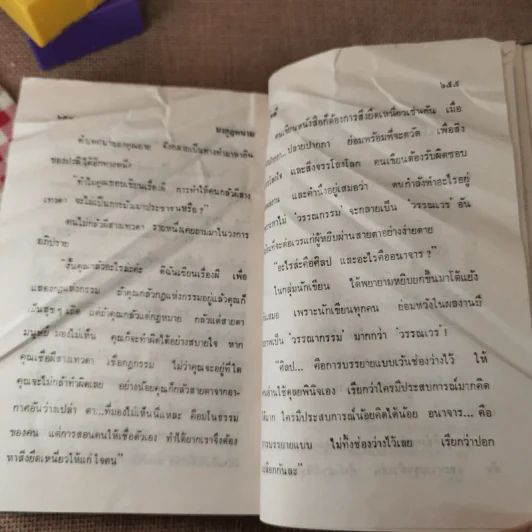 มงกุฎหนาม
คำบทนำของคุณยาย จึงกลายเป็นทางทำมาหากิน
ของปรมีวุฒิอีกทางหนึ่ง
"ทำไมคุณชอบเขียนเรื่องผี การทำให้คนกลัวผีสาง
เทวดา จะไม่เป็นการมัวเมาประชาชนหรือ ?"
คนไม่กลัวผีสางเทวดา รายหนึ่งเคยถามมาในวงการ
อภิปราย
"งั้นคุณกลัวอะไรล่ะคะ ดิฉันเขียนเรื่องผี เพื่อ
แสดงกฎแห่งกรรม ถ้าคุณกลัวกฎแห่งกรรมอยู่แล้วคุณก็
เป็นสุข ๆ เถิด แต่ถ้าคุณกลัวแต่กฎหมาย กลัวแต่สายตา
มนุษย์ มองไม่เห็น คุณก็จะทำผิดได้อย่างสบายใจ หาก
คุณเชื่อผีสางเทวดา เชื่อกฎกรรม ไม่ว่าคุณจะอยู่ที่ใด
คุณจะไม่กล้าทำผิดเลย อย่างน้อยคุณก็กลัวสายตาจากอา-
กาศอันว่างเปล่า ตา...ที่มองไม่เห็นนี่แหละ คือมโนธรรม
ของคน แต่การสอนคนให้เชื่อตัวเอง ทำได้ยากเราจึงต้อง
หาสิ่งยึดเหนี่ยวให้แก่ใจคน"
๒๕๕
คนเขียนหนังสือก็ต้องการสิ่งยึดเหนี่ยวเช่นกัน เมื่อ
ปลายปากกา ย่อมพร้อมที่จะตวัด เพื่อสิ่ง
และสิ่งจรรโลงโลก คนเขียนต้องรับผิดชอบ
และคำนึงอยู่เสมอว่า ตนกำลังทำอะไรอยู่
'วรรณกรรม' จะกลายเป็น 'วรรณเวร' อัน
ที่จะก่อเวรแก่ผู้หยิบผ่านสายตาอย่างง่ายดาย
"อะไรล่ะคือศิลป และอะไรคืออนาจาร ?"
ในกลุ่มนักเขียน ได้พยายามหยิบยกขึ้นมาโต้แย้ง
เสมอ เพราะนักเขียนทุกคน ย่อมหวังในผลงานมี
เป็น 'วรรณกรรม' มากกว่า 'วรรณเวร' !
"ศิลป... คือการบรรยายแบบเว้นช่องว่างไว้ ให้
ผู้อ่านใช้ดุลยพินิจเอง เรียกว่าใครมีประสบการณ์มากคิด
ได้มาก ใครมีประสบการณ์น้อยคิดได้น้อย อนาจาร... คือ
การบรรยายแบบ ไม่ทิ้งช่องว่างไว้เลย เรียกว่าปอก
เปลือกกันละ"